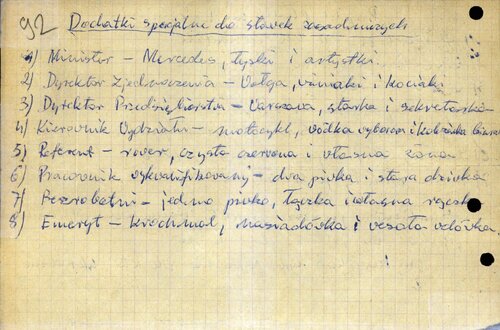 92 Dodatki specjalne do stawek zasadniczych
1) Minister – Mercedes, łyski i artystki.
2) Dyrektor Zjednoczenia – Wołga, winiaki i kociaki
3) Dyrektor Przedsiębiorstwa – Warszawa, starka i sekretarka
4) Kierownik Wydziału – motocykl, wódka wyborowa i koleżanka biurowa
5) Referent – rower, czysta czerwona i własna żona
6) Pracownik wykwalifikowany – dwa piwka i stara dziwka
7) Bezrobotni – jedno piwko, łączka i własna rączka
8) Emeryt – krochmal, nasiadówka i wesoła wdówka.